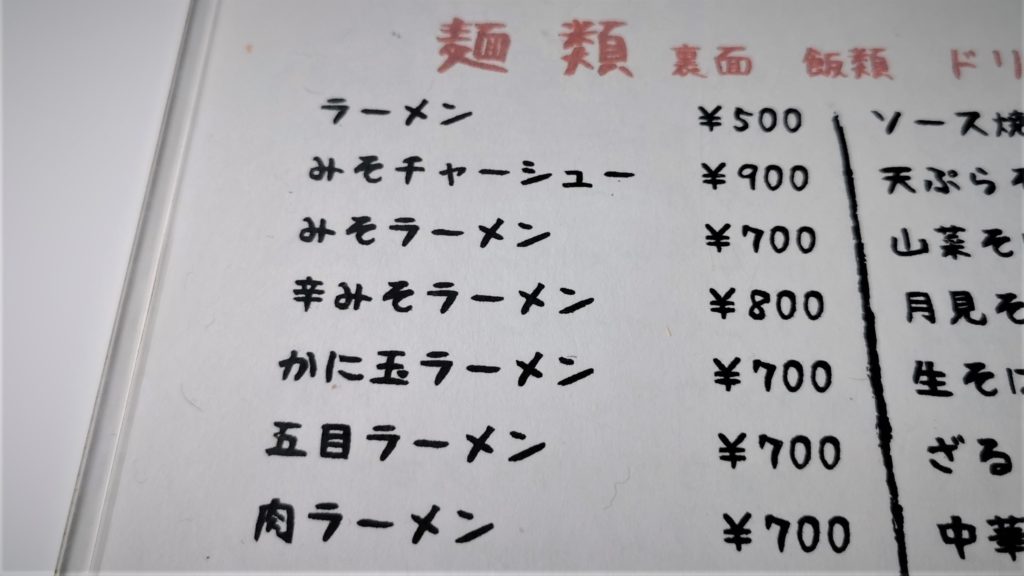 麺類 裏面 飯類 ドリ
ラーメン ¥500
みそチャーシュー ¥900
みそラーメン ¥700
辛みそラーメン ¥800
かに玉ラーメン ¥700
五目ラーメン ¥700
肉ラーメン ¥700
ソース焼
天ぷらそ
山菜そば
月見そ
生そば
ざる
中華